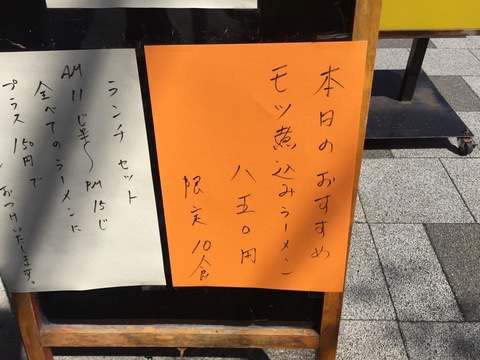 本日のおすすめ
モツ煮込みラーメン
八五〇円
限定10食
ランチセット
AM11じ半〜PM15じ
全べてのラーメンに
プラス150円で
おつけいたします。